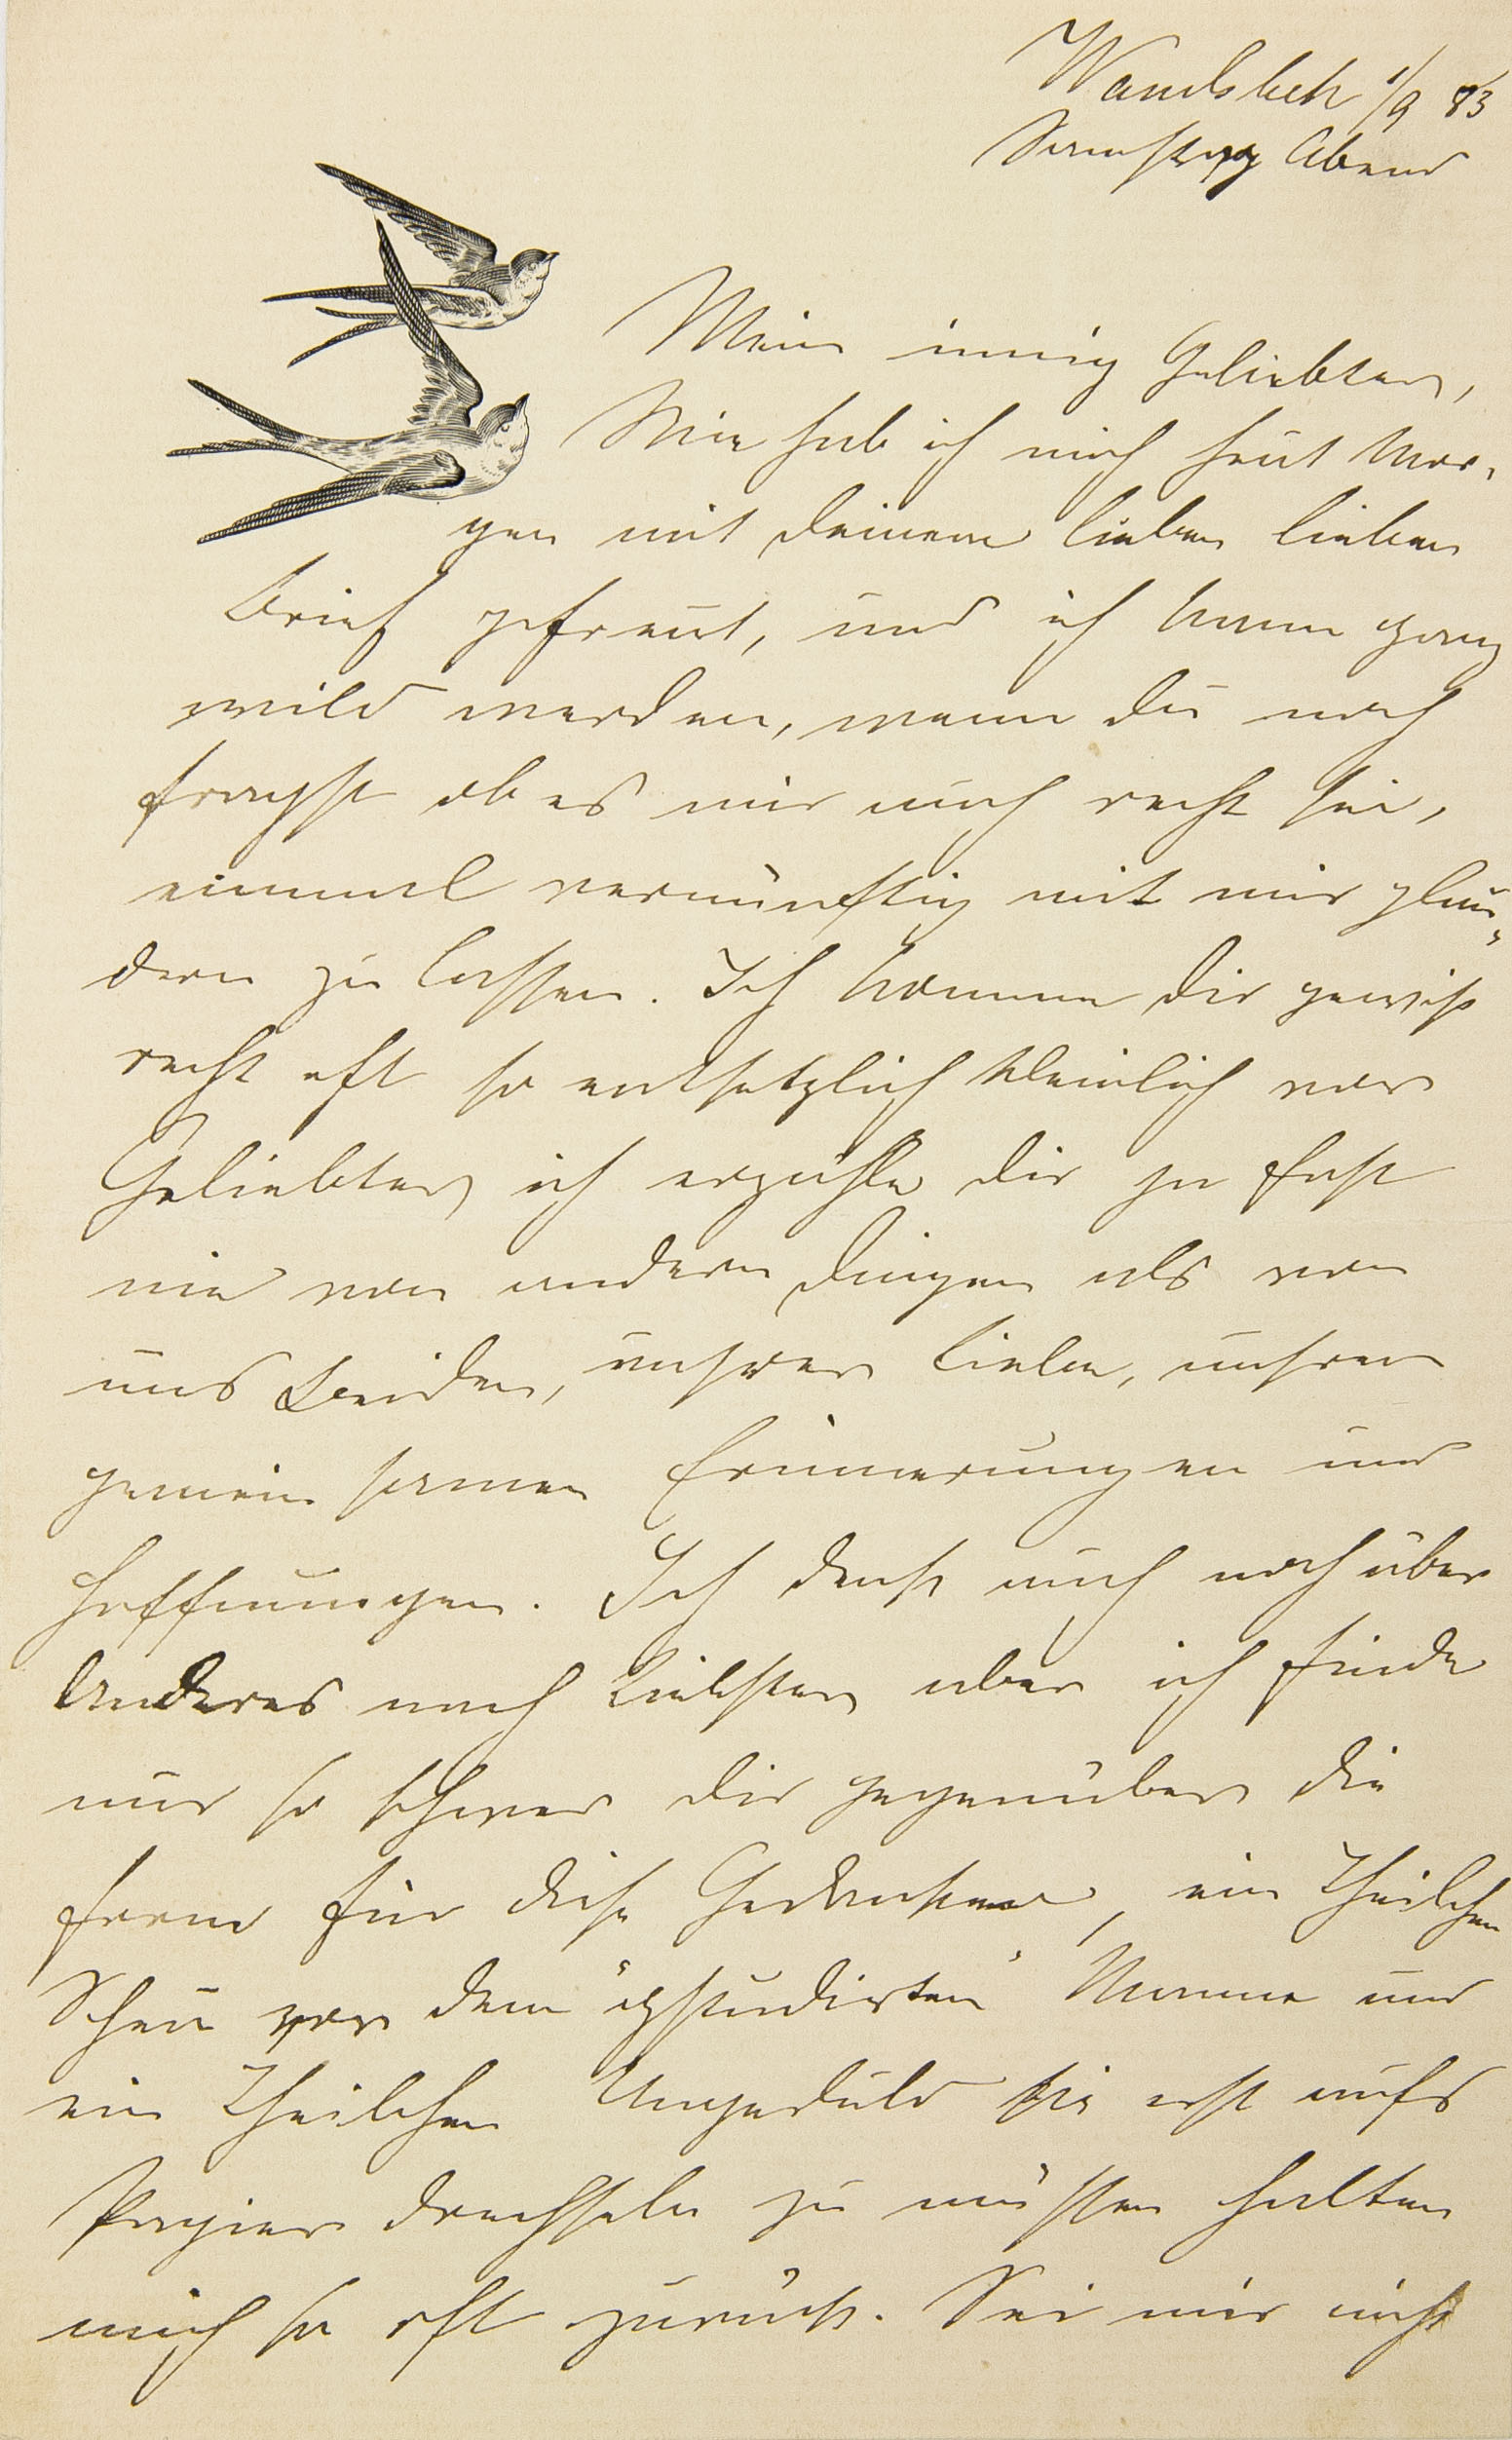 Wandsbek 1/9 83
Samstag Abend
Mein innig Geliebter,
Wie hab ich mich heut Mor-
gen mit Deinem lieben lieben
Brief gefreut, und ich kann ganz
wild werden, wenn Du noch
fragst ob es mir auch recht sei,
einmal vernünftig mit mir plau-
dern zu lassen. Ich komme Dir gewiß
recht oft so entsetzlich kleinlich vor
Geliebter, ich erzähle Dir ja fast
nie von andern Dingen als von
uns Beiden, unsrer Liebe, unsren
gemeinsamen Erinnerungen und
Hoffnungen. Ich denke auch noch über
Anderes nach Liebster, aber ich finde
nur so schwer Dir gegenüber die
Form für diese Gedanken, ein Theilchen
Scheu vor dem "gstudirten" Manne und
ein Theilchen Ungeduld sie erst aufs
Papier drechseln zu müssen halten
mich so oft zurück. Sei mir nicht